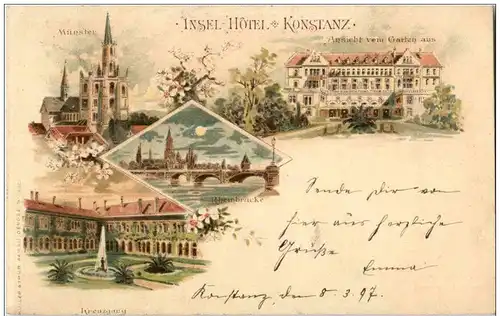 · INSEL-HÔTEL ❖ KONSTANZ ·
Münster
Ansicht vom Garten aus
Rheinbrücke
Sende Dir von
hier aus herzliche
Grüße
Emma
Konstanz, den 8.3.97.
Kreuzgang